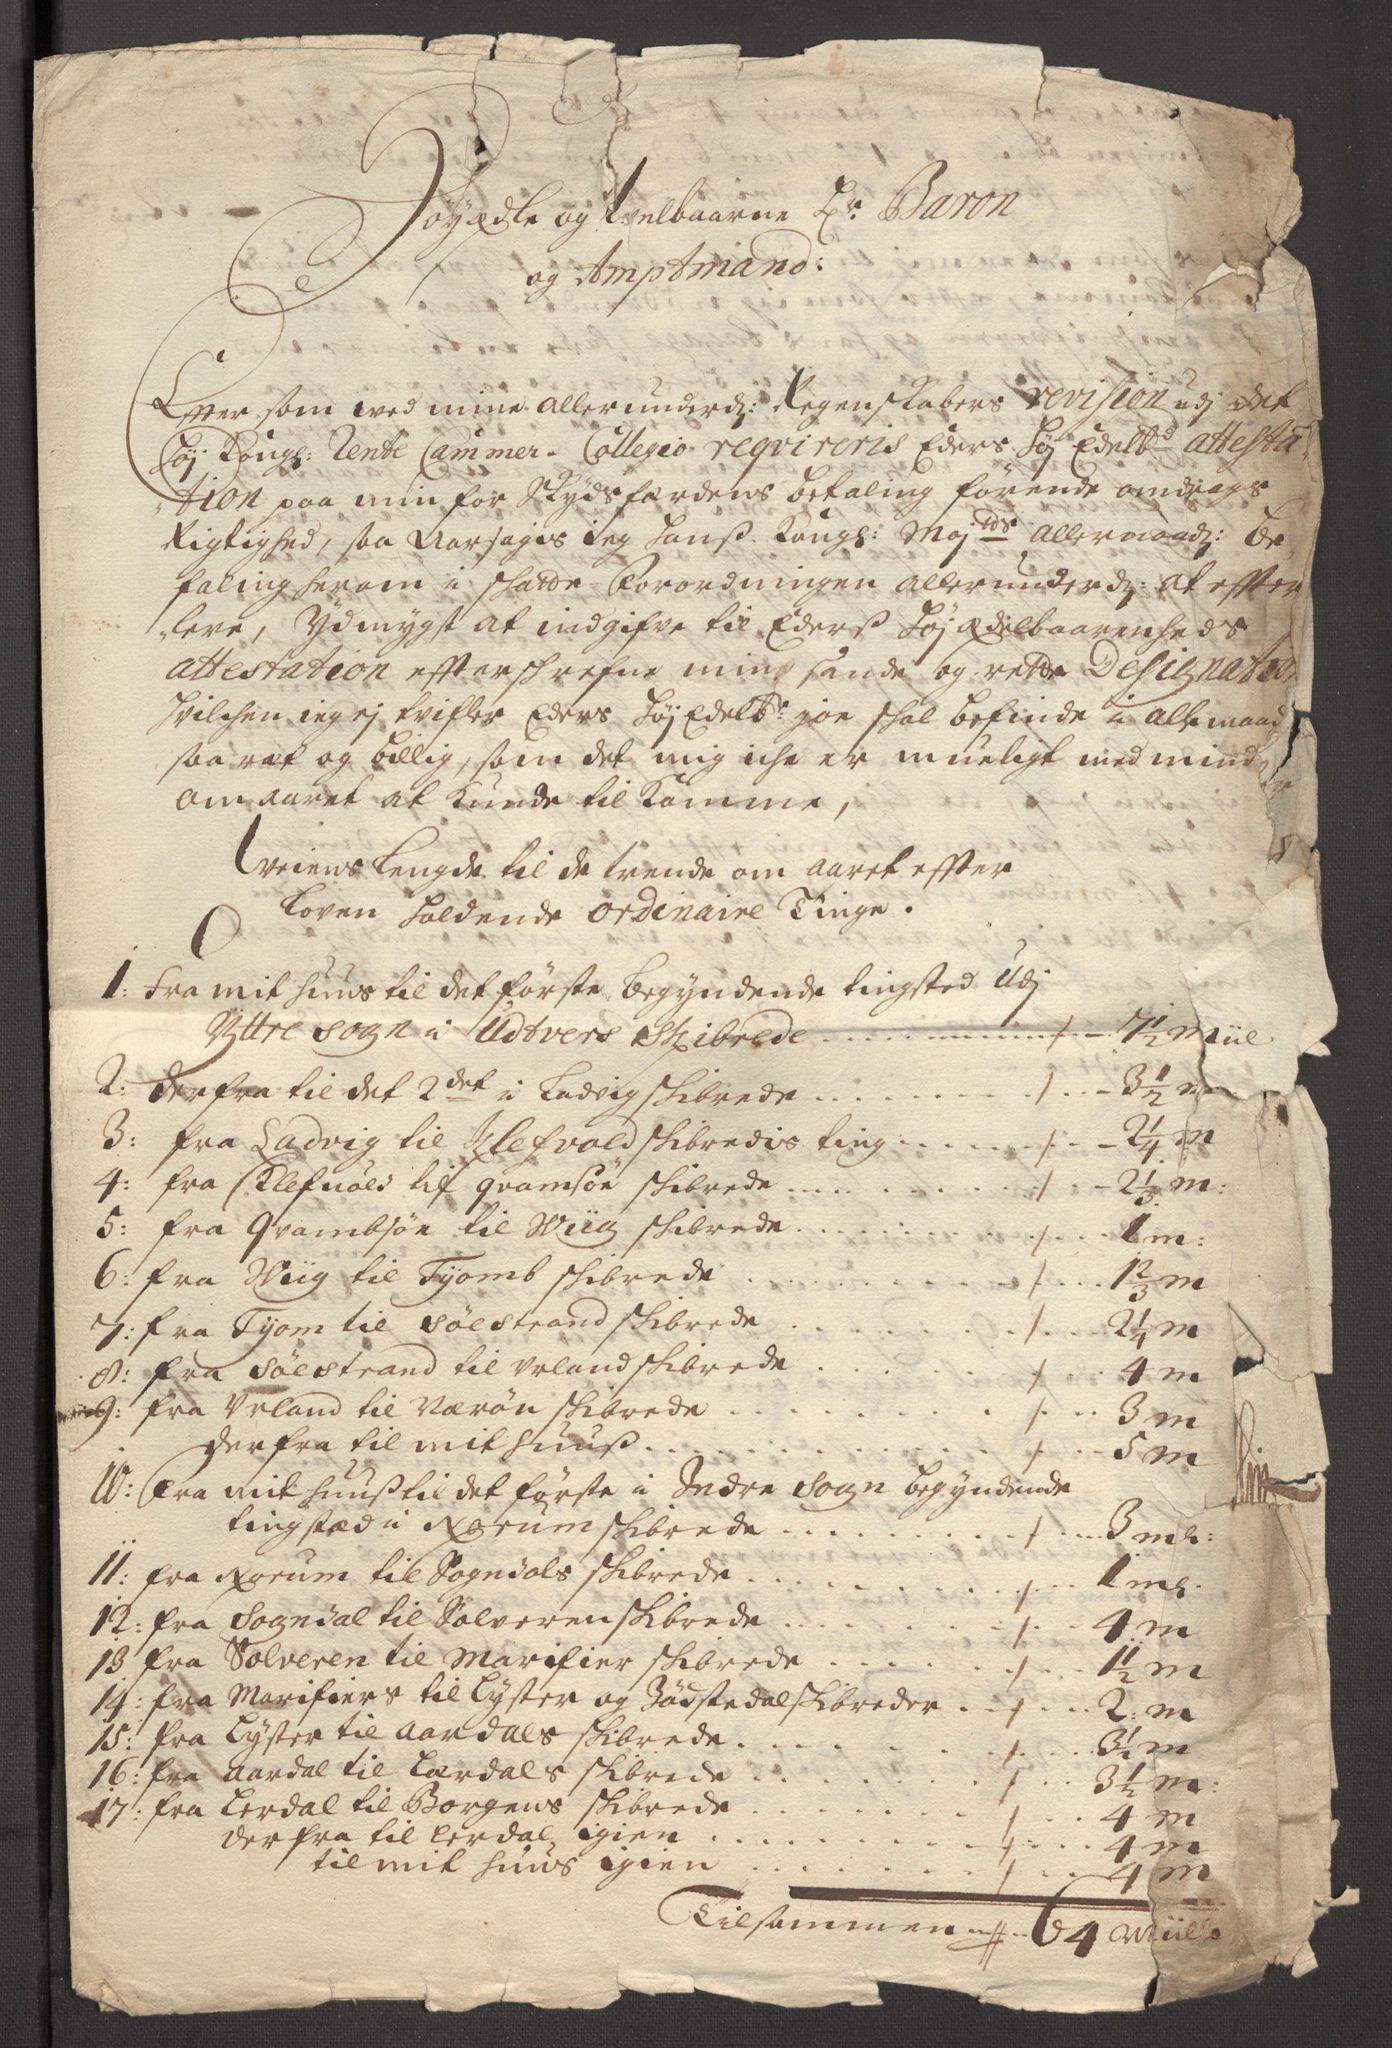 Høyædle og Velbaarne Hr. Baron
og Amptmand:
Effter som ved mine allerunderd: Regenskabers revision udj det
Høj Kongl: Rente Cammer-Collegio reqvireris Eders Høj Edelbd attesta-
tion paa min for Skydsfærdens betaling førende omdrags
Rigtighed, saa aarsagis ieg hans Kongl: Majtds allernaad: be-
faling herom i skatte-Forordningen allerunderd: at effter
leve, ydmygst at indgifve til Ederss Høj ædelbaarenheds
attestation effterskrefne min sande og rette Designation
hvilchen ieg ej tvifler Eders Høj Edelb: joe skal befinde i alle maad
saa ret og billig, som det mig iche er mueligt med mindre
om aaret at kunde til komme,
Veiens Lengde til de trende om aaret effter
Loven holdende ordinaire Tinge.
1: Fra mit huus til det første begyndende tingsted udj
Yttre Sogn i Udtvers skibrede ... 7 1/2 Miil
2: derfra til det 2det i Ladvig skibrede ... 3 1/2 m
3: fra Ladvig til Klefvold skibredis ting ... 2 1/4 m
4: fra Klefvold til qvamsøe skibrede ... 2 1/3 m:
5: fra Qvambsøe til Wiig skibrede ... 1 m:
6: fra Wiig til Tyomb skibrede ... 1 2/3 m
7: fra Tyom til Sølstrand skibrede ... 2 1/4 m
8: fra Sølstrand til Urland skibrede ... 4 m
9: fra Urland til Værøn skibrede ... 3 m
derfra til mit huuss ... 5 m
10: Fra mit huuss til det første i Indre Sogn begyndende
tingstæd i Norum skibrede ... 3 ml:
11: fra Norum til Sogndals skibrede ... 1 ml:
12: fra Sogndal til Solveren skibrede ... 4 m
13 fra Solveren til Marifier skibrede ... 1 1/2 m
14: fra Marifiers til Lyster og Jødstedal skibreder ... 2: m
15: fra Lyster til Aardals skibrede ... 3 1/2 m
16: fra Aardal til Lærdals skibrede ... 3 1/2 m:
17: fra Lerdal til Borgens skibrede ... 4 m
derfra til Lerdal igien ... 4 m
til mit huus igien ... 4 m
Tilsammen ... 64 Miile